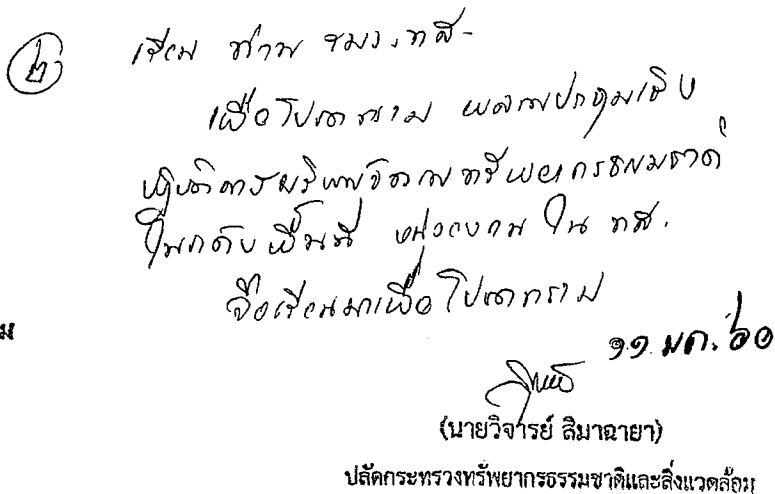 ๒
เรียน ท่าน รมว.ทส.
เพื่อโปรดทราบ ผลการประชุมเชิง
ปฏิบัติการบริหารจัดการทรัพยากรธรรมชาติ
ในระดับพื้นที่ หน่วยงาน ใน ทส.
จึงเรียนมาเพื่อโปรดทราบ
ม
๑๑ มค. ๖๐
(นายวิจารย์ สิมาฉายา)
ปลัดกระทรวงทรัพยากรธรรมชาติและสิ่งแวดล้อม